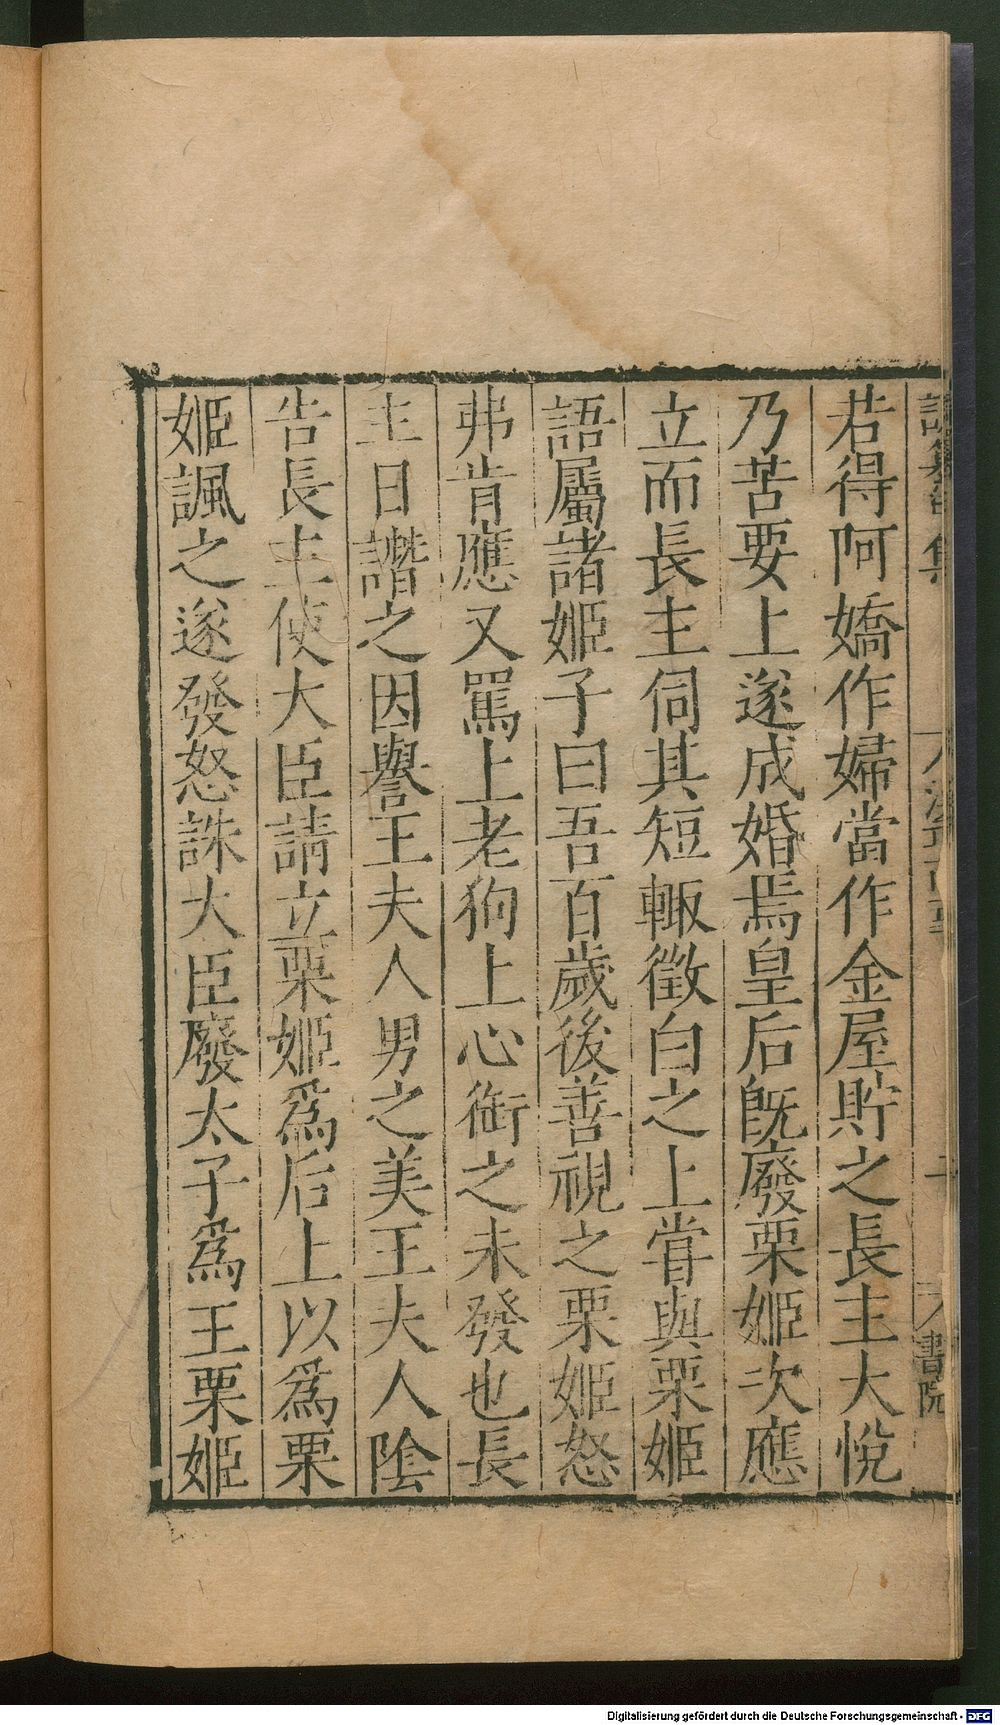 若得阿嬌作婦當作金屋貯之長主大悅
乃苦要上遂成婚焉皇后既廢栗姬次應
立而長主伺其短輙徵白之上甞與栗姬
語屬諸姬子曰吾百歲後善視之栗姬怒
弗肯應又罵上老狗上心銜之未發也長
主日譖之因譽王夫人男之美王夫人陰
告長主使大臣請立栗姬爲后上以爲栗
姬諷之遂發怒誅大臣廢太子爲王栗姬
二
書院
Digitalisierung gefördert durch die Deutsche Forschungsgemeinschaft - DFG